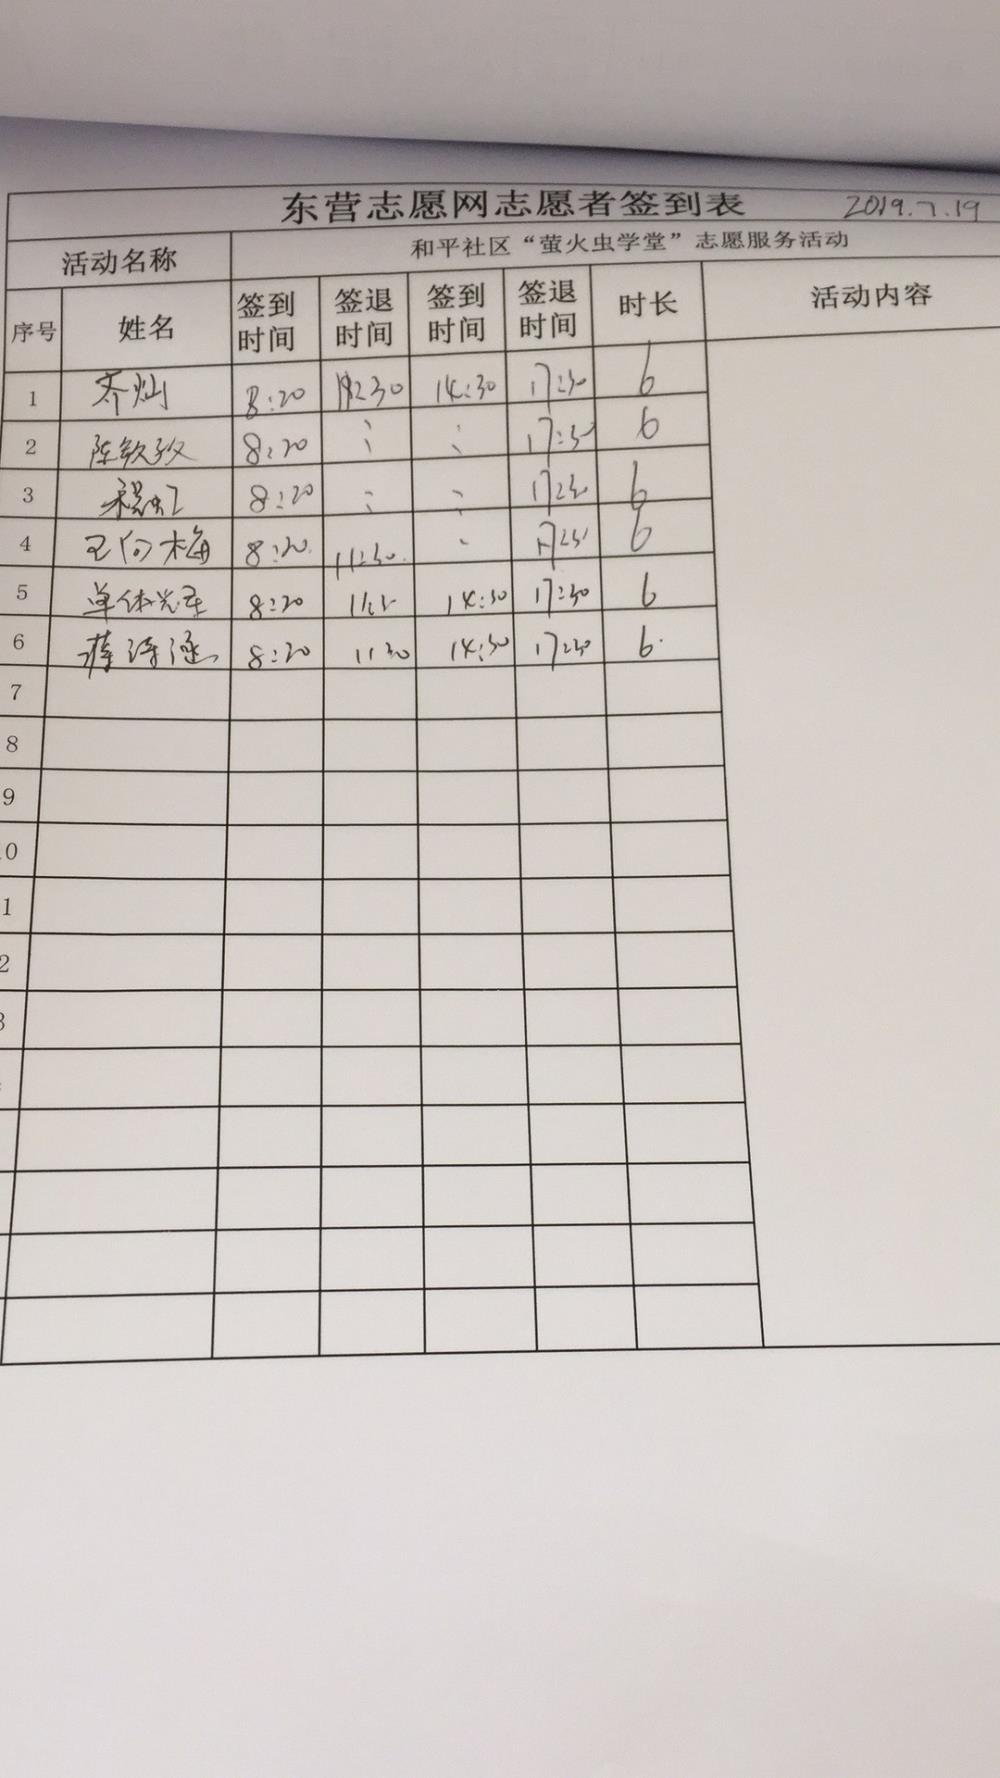 东营志愿网志愿者签到表 2019.7.19
活动名称 和平社区“萤火虫学堂”志愿服务活动
序号 姓名 签到时间 签退时间 签到时间 签退时间 时长 活动内容
1 齐灿 8:20 14:30 17:30 6
2 8:20 : : 17:30 6
3 8:20 : : 17:30 6
4 王向梅 8:20 11:30 17:30 6
5 8:20 14:30 17:30 6
6 8:20 11 30 14:30 17:30 6
7
8
9
0
1
2
3